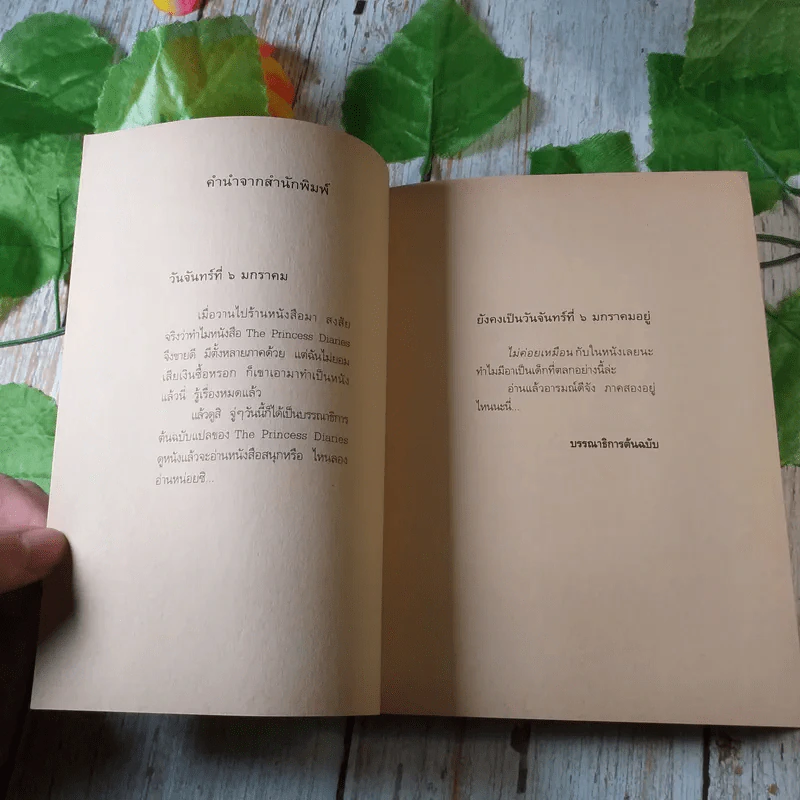 คำนำจากสำนักพิมพ์
วันจันทร์ที่ ๖ มกราคม
เมื่อวานไปร้านหนังสือมา สงสัย
จริงว่าทำไมหนังสือ The Princess Diaries
จึงขายดี มีตั้งหลายภาคด้วย แต่ฉันไม่ยอม
เสียเงินซื้อหรอก ก็เขาเอามาทำเป็นหนัง
แล้วนี่ รู้เรื่องหมดแล้ว
แล้วดูสิ จู่ๆวันนี้ก็ได้เป็นบรรณาธิการ
ต้นฉบับแปลของ The Princess Diaries
ดูหนังแล้วจะอ่านหนังสือสนุกหรือ ไหนลอง
อ่านหน่อยซิ...
ยังคงเป็นวันจันทร์ที่ ๖ มกราคมอยู่
ไม่ค่อยเหมือนกับในหนังเลยนะ
ทำไมมีอาเป็นเด็กที่ตลกอย่างนี้ล่ะ
อ่านแล้วอารมณ์ดีจัง ภาคสองอยู่
ไหนนะนี่...
บรรณาธิการต้นฉบับ